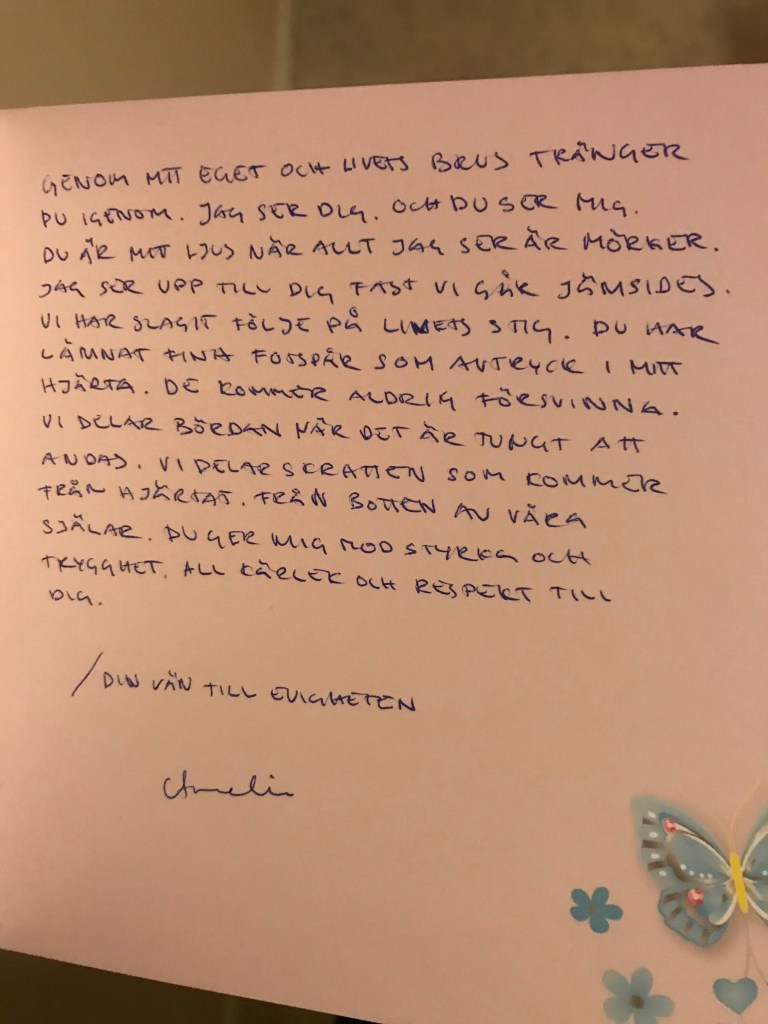 GENOM MITT EGET OCH LIVETS BRUS TRÄNGER
DU IGENOM. JAG SER DIG. OCH DU SER MIG.
DU ÄR MITT LJUS NÄR ALLT JAG SER ÄR MÖRKER.
JAG SER UPP TILL DIG FAST VI GÅR JÄMSIDES.
VI HAR SLAGIT FÖLJE PÅ LIVETS STIG. DU HAR
LÄMNAT FINA FOTSPÅR SOM AVTRYCK I MITT
HJÄRTA. DE KOMMER ALDRIG FÖRSVINNA.
VI DELAR BÖRDAN NÄR DET ÄR TUNGT ATT
ANDAS. VI DELAR SKRATTEN SOM KOMMER
FRÅN HJÄRTAT. FRÅN BOTTEN AV VÅRA
SJÄLAR. DU GER MIG MOD STYRKA OCH
TRYGGHET. ALL KÄRLEK OCH RESPEKT TILL
DIG.
/DIN VÄN TILL EVIGHETEN
Amelie